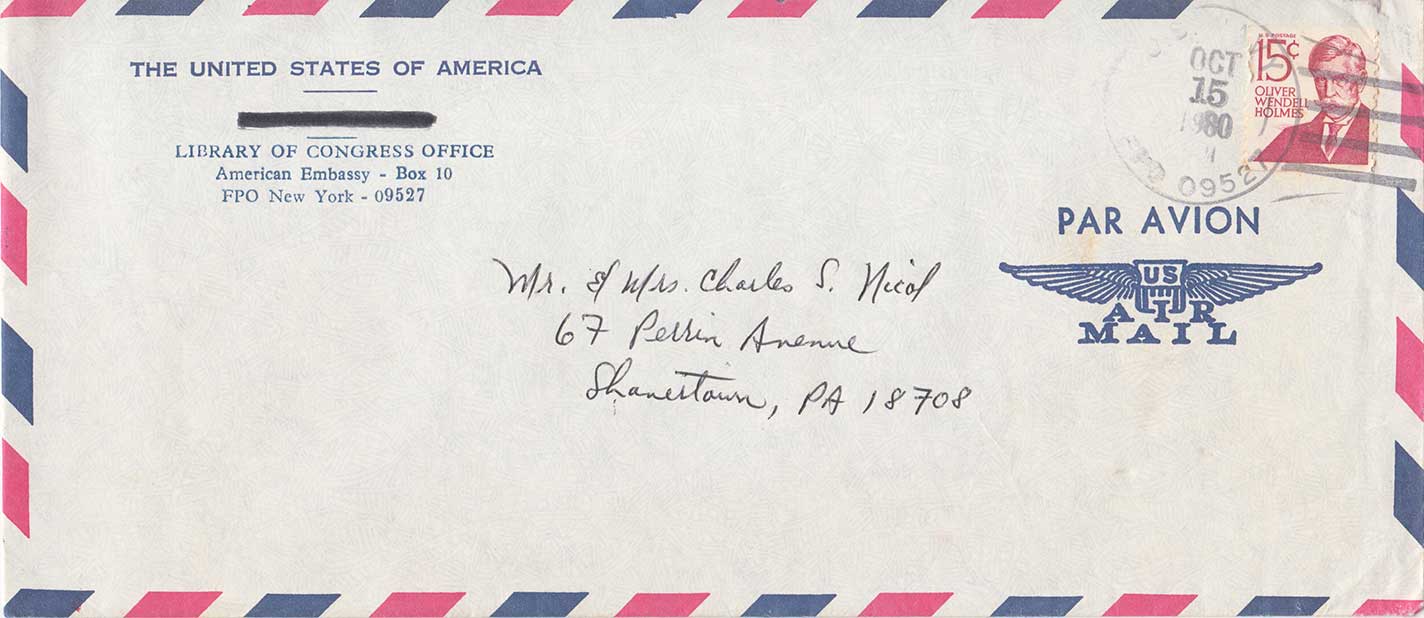 THE UNITED STATES OF AMERICA
LIBRARY OF CONGRESS OFFICE
American Embassy - Box 10
FPO New York - 09527
OCT
15
1980
FPO 09527
U.S. POSTAGE
15¢
OLIVER
WENDELL
HOLMES
PAR AVION
US
AIR
MAIL
Mr. & Mrs. Charles S. Nicol
67 Perrin Avenue
Shavertown, PA 18708